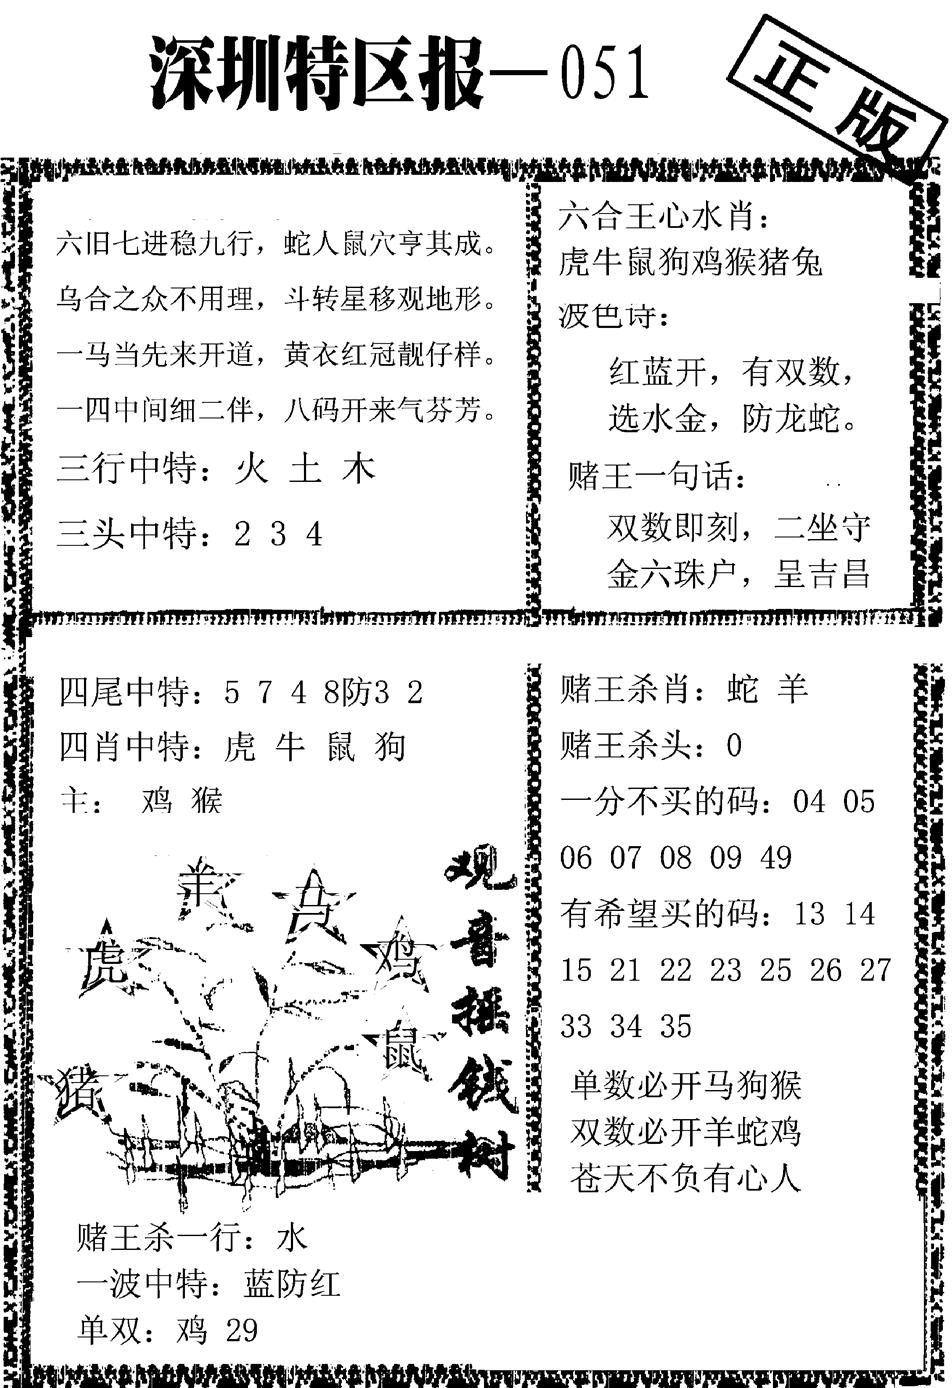 深圳特区报—051
正版
六旧七进稳九行，蛇人鼠穴亨其成。
乌合之众不用理，斗转星移观地形。
一马当先来开道，黄衣红冠靓仔样。
一四中间细二伴，八码开来气芬芳。
三行中特：火 土 木
三头中特：2 3 4
六合王心水肖：
虎牛鼠狗鸡猴猪兔
波色诗：
红蓝开，有双数，
选水金，防龙蛇。
赌王一句话：
双数即刻，二坐守
金六珠户，呈吉昌
四尾中特：5 7 4 8防3 2
四肖中特：虎 牛 鼠 狗
主： 鸡 猴
羊
马
虎
鸡
鼠
猪
观音摇钱树
赌王杀一行：水
一波中特：蓝防红
单双：鸡 29
赌王杀肖：蛇 羊
赌王杀头：0
一分不买的码：04 05
06 07 08 09 49
有希望买的码：13 14
15 21 22 23 25 26 27
33 34 35
单数必开马狗猴
双数必开羊蛇鸡
苍天不负有心人